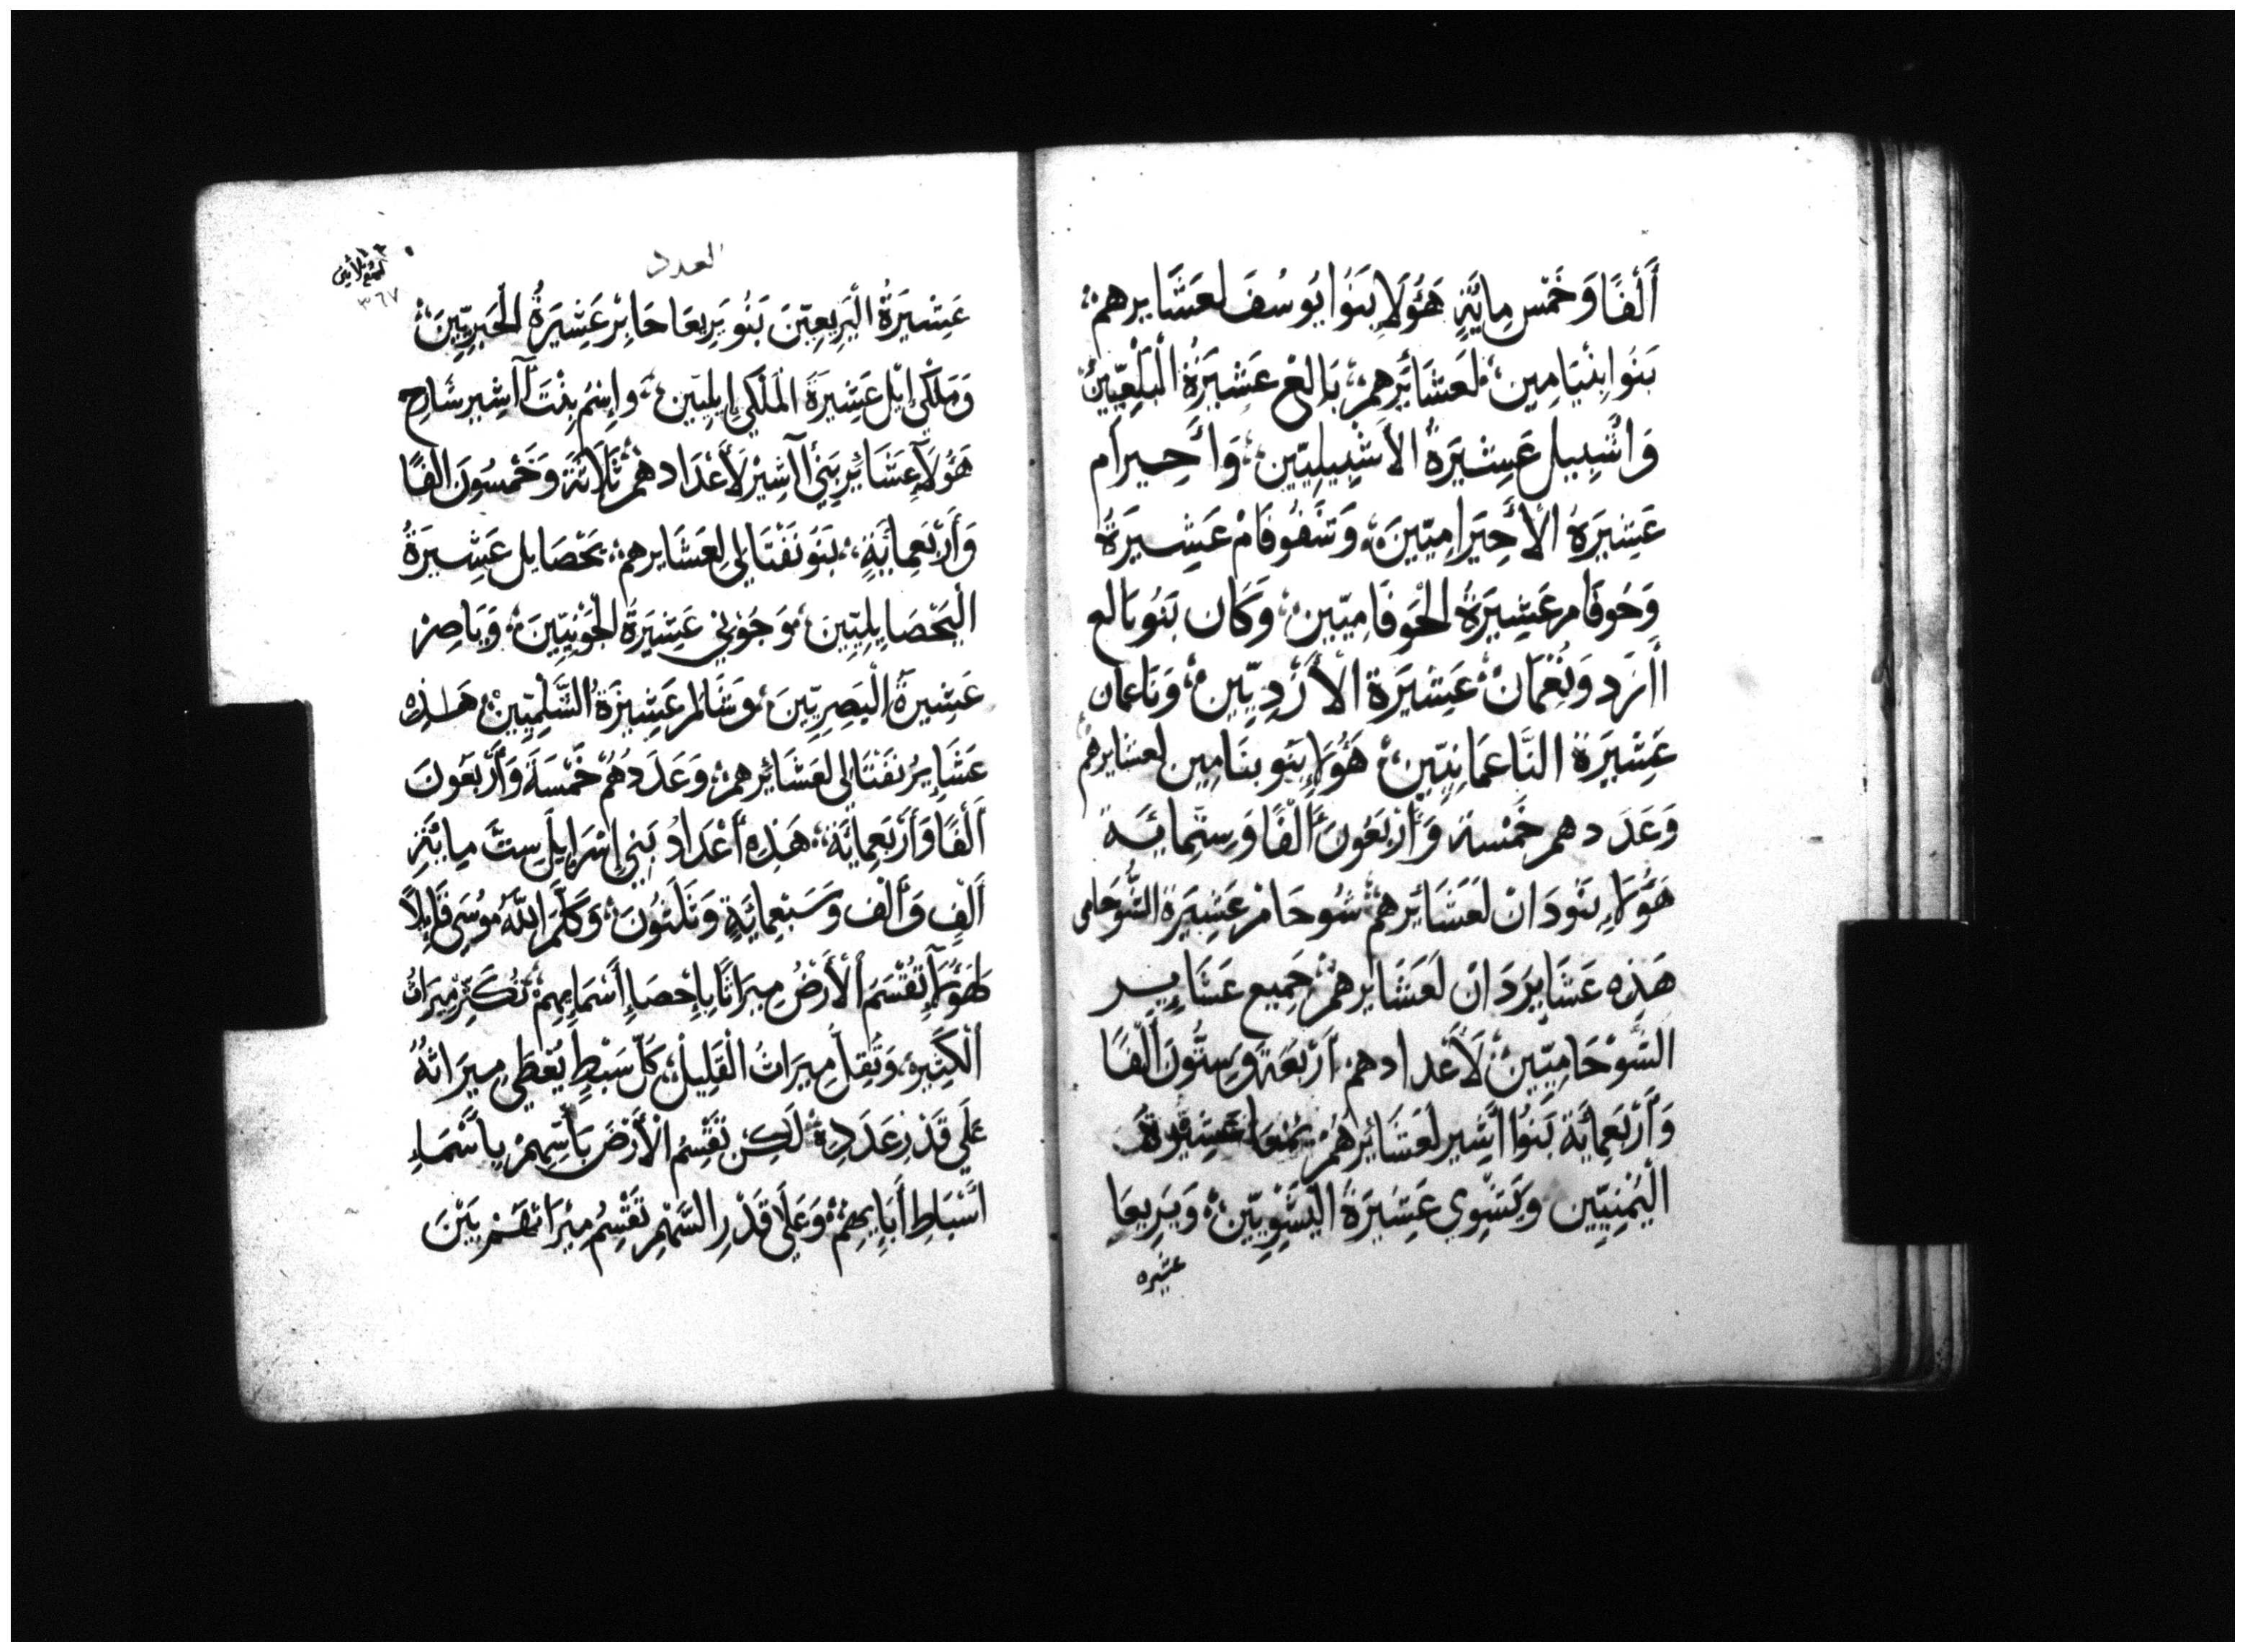 أَلْفًا وَخَمْس مِايَّةٍ هَؤُلَاِ بَنُوا يُوسُفَ لعَشَايرهمْ
بَنُوا بِنْيَامِين لَعشَائَرِهمْ بَالِعْ عَشِيَرةُ الْبَلْعِيّينَ
وَاشْبِيل عَشِيَرةُ الاَشْبِيلِيّين وَأَحِيرَام
عَشِيَرةُ الأَحِيَرامِيّينَ وَشَفُوفَامْ عَشِيَرةُ
وَحُوفَام عَشِيَرةُ الْحَوفَامِيّين وَكَان بَنُو بَالع
أَارَد وَنُعْمَانْ عَشِيَرة الأَرْدِيّين وَنَاعمان
عَشِيَرةُ النَّاعَمَانِيّين هَؤُلَاِ بَنُو بنَامِين لعشايرهم
وَعَدَدهم خَمْسة وَأَرْبَعُونَ أَلْفًا وَستّمِايَة
هَؤُلَاِ بَنُو دَانْ لَعَشَائَرهمْ شُوحَامْ عَشِيَرة الشُّوحَامى
هَذِهِ عَشَايرَ دَانْ لَعَشَايرهمْ جَمِيع عَشَايِر
الشَّوْحَامِيّينْ لَأَعْدادهمْ أَرْبَعَة وَسِتُّونَ أَلْفًا
وَأَرْبَعمِائَة بَنُوا أَشِير لَعَشَائِرهُمْ يمْنعا عَشِيَرةَ
الْيَمْنِيّين وَيَشْوِي عَشِيَرةُ الْيَشْوِيّين وَبَرِيعَا
عشيره
العدد
٣٦٧
عَشِيَرةُ الْبَرِيعِيّنَ بَنُو بَرِيعَا حَابِرْ عَشِيَرةُ الْحَبِرِيّينَ
وَمَلْكَى ايْل عَشِيَرةَ الْمَلْكَي إيلِيين وَاِسْمُ بِنْت آاشِير شَارَح
هَؤُلَآِ عَشَائِر بَنِي آاشِيرْ لَأَعْدَادهمْ ثَلَاثَة وَخَمْسُونَ أَلْفًا
وَأَرْبَعمِايَةٍ بَنَو نَفْتَالِي لِعَشَايرهمْ يَحْصَايل عَشِيرَةُ
الْيَحْصَايِلِيّينَ وَجُوْنِي عَشِيَرةُ الْجَوْنِيّينَ وَيَاصِرْ
عَشِيرَةُ الْيَصِرِيّينَ وَشَالمْ عَشِيرَةُ الشَّلِمِيّين هَذِه
عَشَايِرُ نفَتَالى لعَشَائِرهمْ وَعَدَدهُمْ خَمْسَة وَأَرْبَعَونَ
أَلْفًا وَأَرْبَعمِائَة هَذِهِ أَعْدَادُ بَنِي إسْرَايلَ سِتَّ مِايْةِ
أَلْفٍ وَأَلْف وَسَبْعمِائَةٍ وَثَلَثُونَ وَكَلَّمَ اللّهُ مُوسَى قَايلاً
لَهَؤُلَآِ تُقْسَمَ الْأَرْضُ مِيَراثًا بِإِحْصَاِ أَسْمَايِهِمْ تُكَثِّرْ مِيَراثُ
الْكَثِيره وَتُقِلُّ مِيَراثُ الْقَلِيلْ كُلّ سَبْطٍ يُعْطَي مِيَراثهُ
عَلَي قَدْرِ عَدَدِهِ لَكِن تَقْسِمُ الْأَرْضَ بَأسْهِمْ بِأَسْمَاءِ
أَسْبَاطِ أَبَايِهِمْ وَعَلَى قَدْرِ السَّهْمِ تَقْسِمُ مِيْرَاثهَمْ بَيْنَ